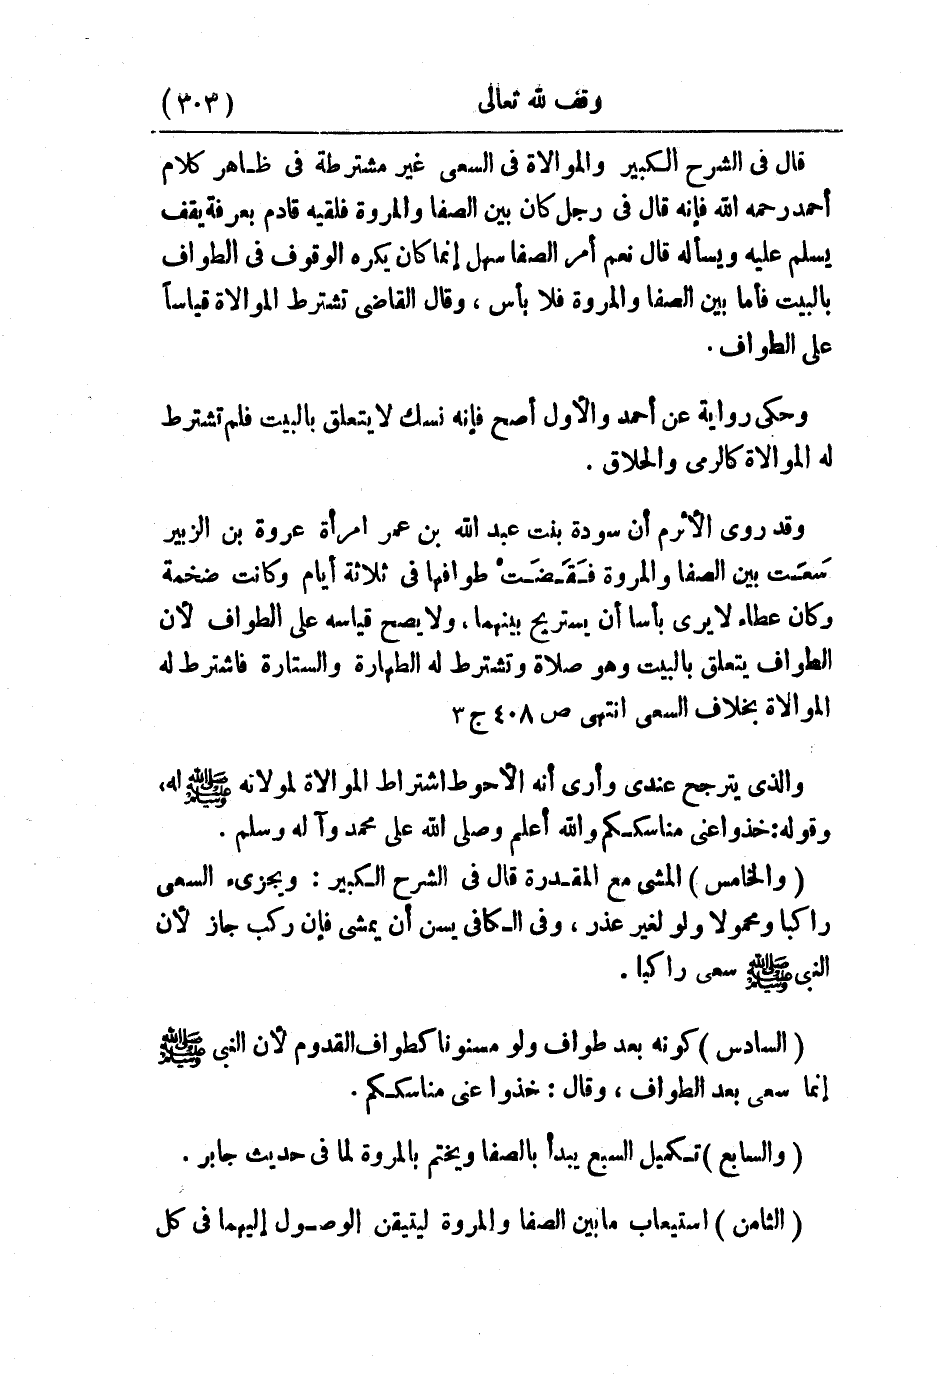 وقف لله تعالى (٣٠٣)
قال فى الشرح الكبير والموالاة فى السعى غير مشترطة فى ظاهر كلام
أحمد رحمه الله فإنه قال فى رجل كان بين الصفا والمروة فلقيه قادم بعرفة يقف
يسلم عليه ويسأله قال نعم أمر الصفا سهل إنما كان يكره الوقوف فى الطواف
بالبيت فأما بين الصفا والمروة فلا بأس ، وقال القاضى تشترط الموالاة قياساً
على الطواف .
وحكى رواية عن أحمد والأول أصح فإنه نسك لا يتعلق بالبيت فلم تشترط
له الموالاة كالرمى والحلاق .
وقد روى الأثرم أن سودة بنت عبد الله بن عمر امرأة عروة بن الزبير
سَعَت بين الصفا والمروة فَقَضَتْ طوافها فى ثلاثة أيام وكانت ضخمة
وكان عطاء لا يرى بأسا أن يستريح بينهما ، ولا يصح قياسه على الطواف لأن
الطواف يتعلق بالبيت وهو صلاة وتشترط له الطهارة والستارة فاشترط له
الموالاة بخلاف السعى انتهى ص ٤٠٨ ج ٣
والذى يترجح عندى وأرى أنه الأحوط اشتراط الموالاة لمولانه ﷺ له،
وقوله: خذوا عنى مناسككم والله أعلم وصلى الله على محمد وآله وسلم .
( والخامس ) المشى مع المقدرة قال فى الشرح الكبير : ويجزىء السعى
راكبا ومحمولا ولو لغير عذر ، وفى الكافى يسن أن يمشى فإن ركب جاز لأن
النبى ﷺ سعى راكبا .
( السادس ) كونه بعد طواف ولو مسنونا كطواف القدوم لأن النبى ﷺ
إنما سعى بعد الطواف ، وقال : خذوا عنى مناسككم .
( والسابع ) تكميل السبع يبدأ بالصفا ويختم بالمروة لما فى حديث جابر .
( الثامن ) استيعاب ما بين الصفا والمروة ليتيقن الوصول إليهما فى كل